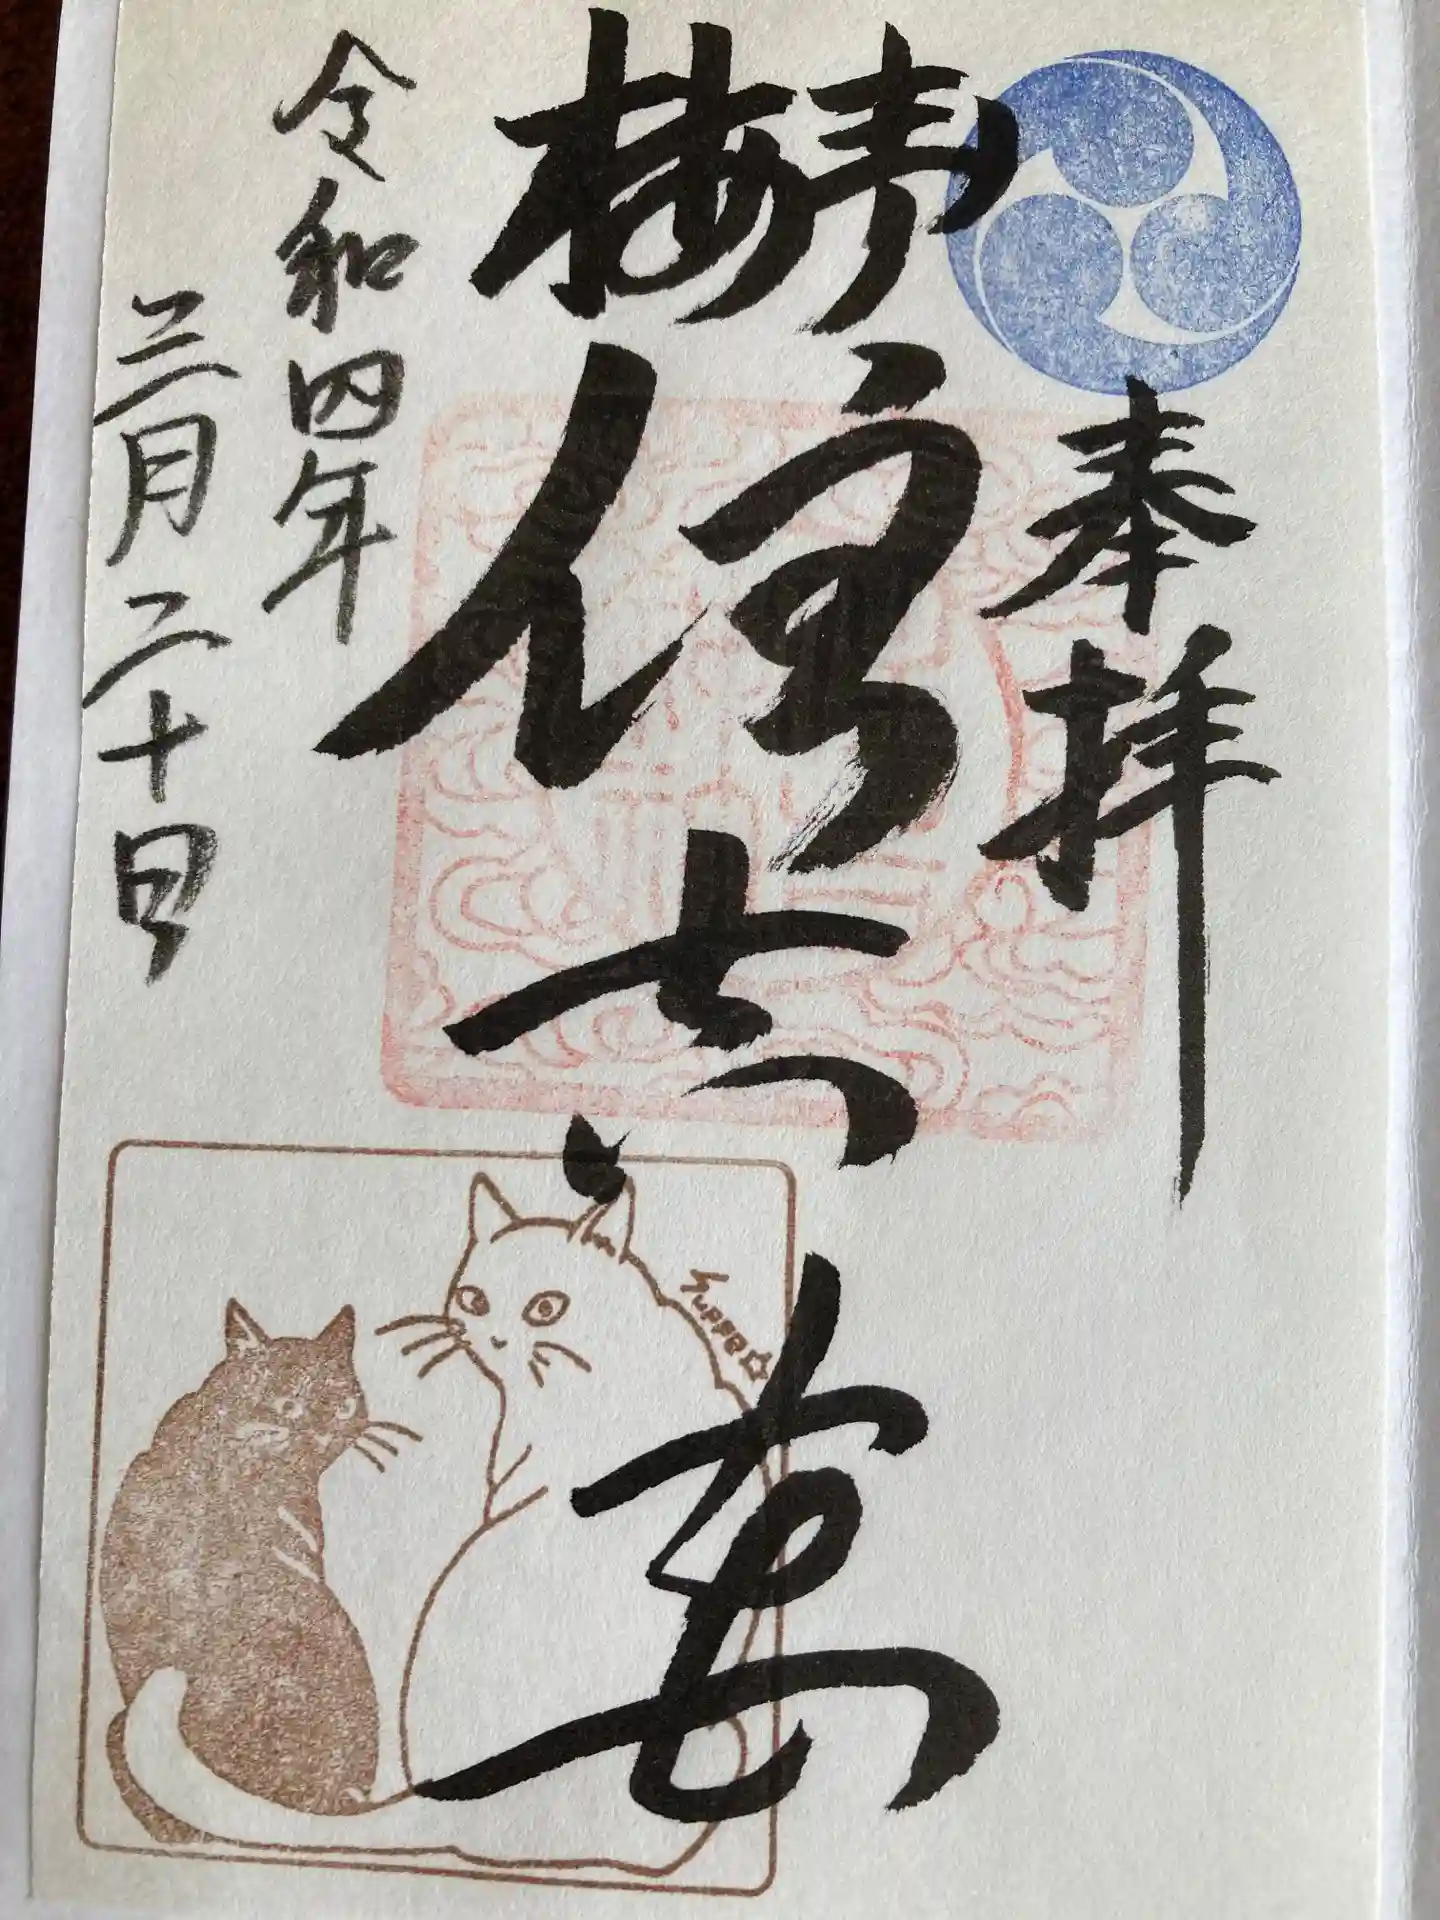 奉拝
青梅
住
令和四年
三月二十日
Suppe☆